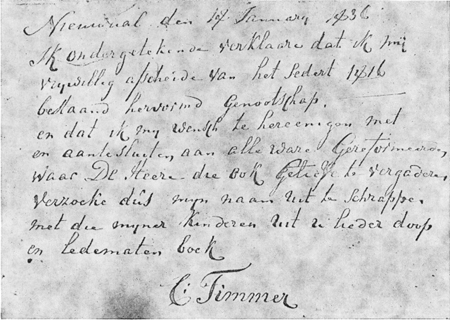 Nieuwwal den 14 January 1836
Ik ondergetekende verklaare dat ik mij
vrijwillig afscheide van het Sedert 1816
bestaand hervormd Genootschap.
en dat ik mij wensch te hereenigen met
en aantesluiten, aan alle ware Gereformeeren,
waar De Heere die ook Gelieft te vergaderen
verzoeke dus mijn naam uit te schrappe.
met die mijner kinderen uit u lieder doop
en ledematen boek
C: Timmer